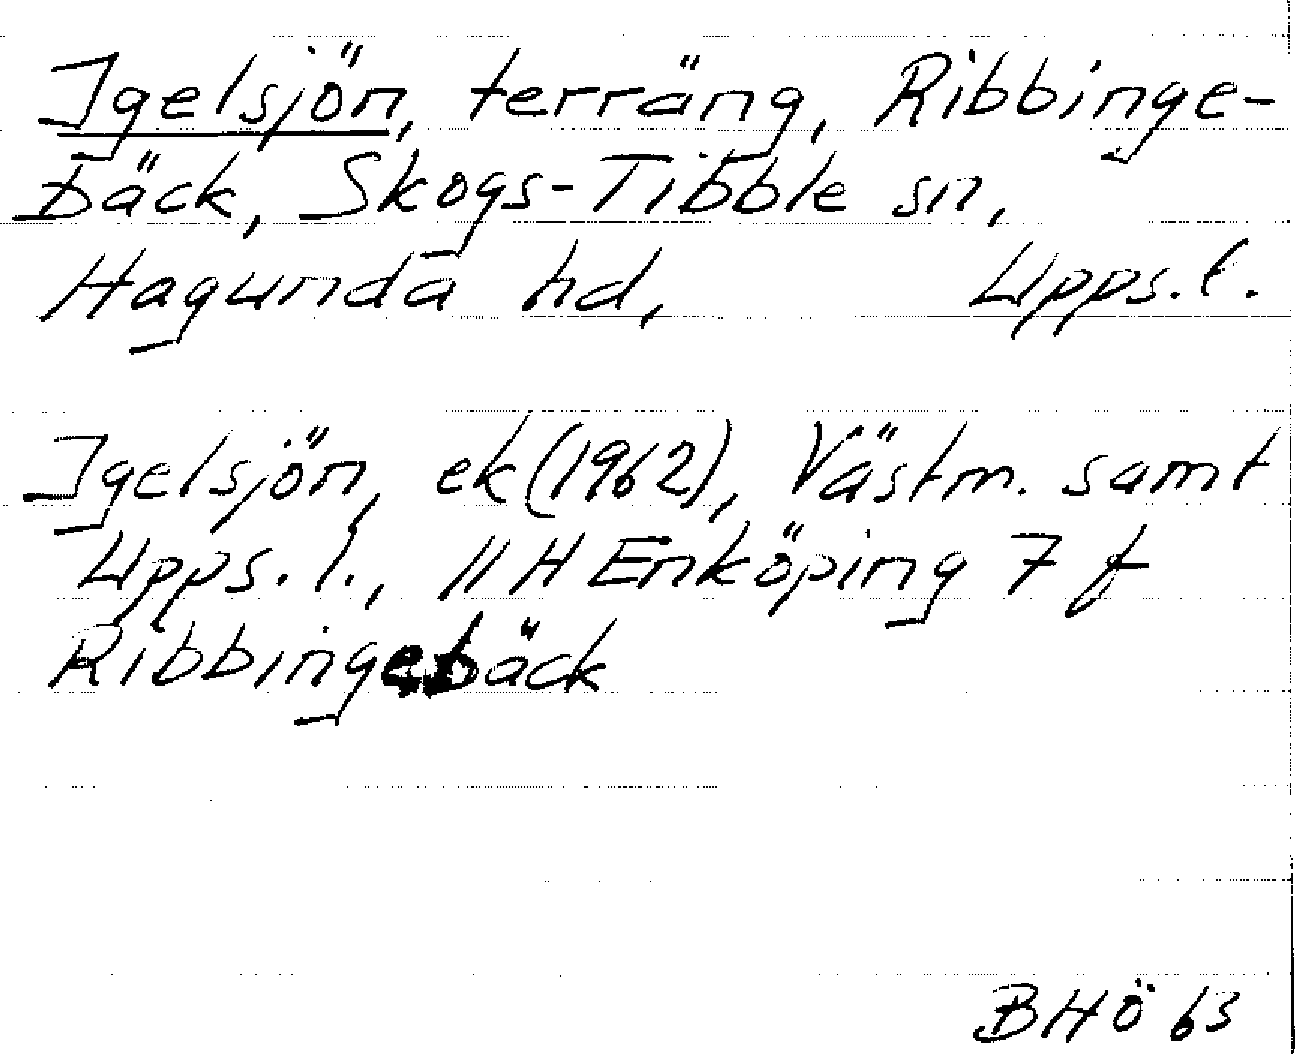 Igelsjön, terräng, Ribbinge-
bäck, Skogs-Tibble sn,
Hagunda hd, Upps.l.
Igelsjön, ek(1962), Västm. samt
Upps. l., 11 H Enköping 7 f
Ribbingebäck
BHÖ 63